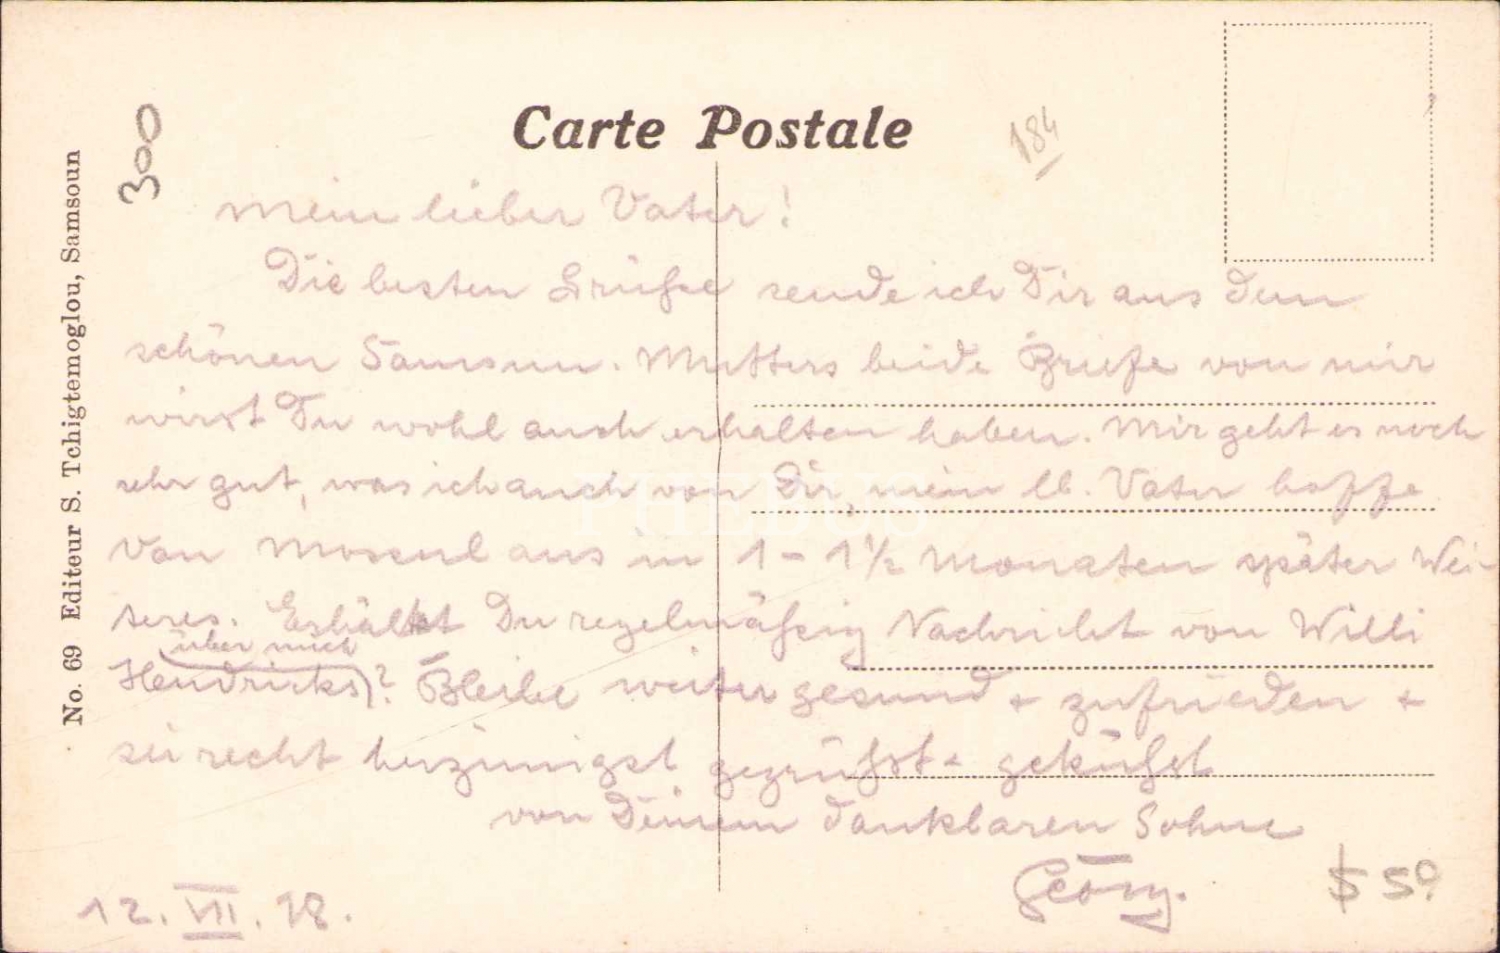 Carte Postale
184
300
No. 69 Editeur S. Tchigtemoglou, Samsoun
Mein lieber Vater!
Die besten Grüße sende ich Dir aus dem
schönen Samsun. Mutters beide Briefe von mir
wirst Du wohl auch erhalten haben. Mir geht es noch
sehr gut, was ich auch von Dir, mein lb. Vater hoffe
Von Mossul aus in 1 - 1 1/2 Monaten später Wei-
teres. Erhältst Du regelmäßig Nachricht von Willi
über mich
Hendricks)? Bleibe weiter gesund + zufrieden +
sei recht herzinnigst gegrüßt + geküßt
von Deinem dankbaren Sohne
Georg.
12. VII. 18.
$ 50
PHEBUS